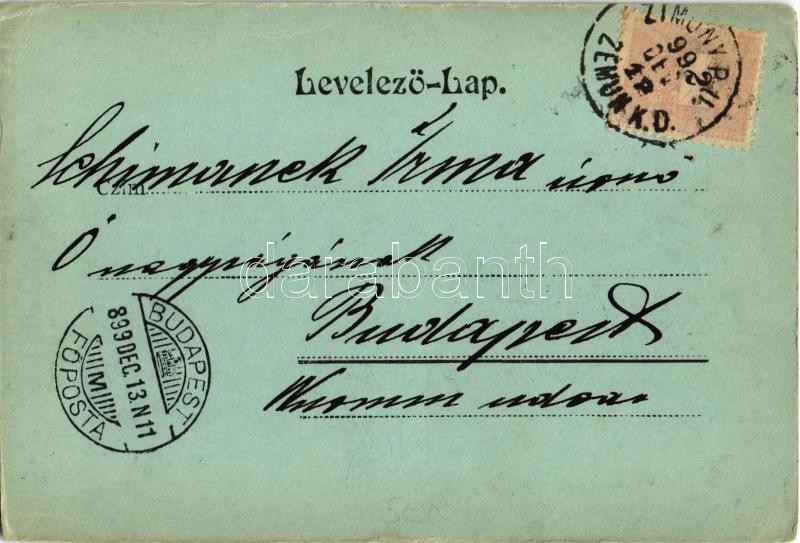 Levelező-Lap.
ZIMONY P.U.
ZEMUN K.D.
Schimanek Irma úrnő
Czím
Ő nagyságának
Budapest
udvar
BUDAPEST
899 DEC. 13. N 11
M
FŐPOSTA
darabanth